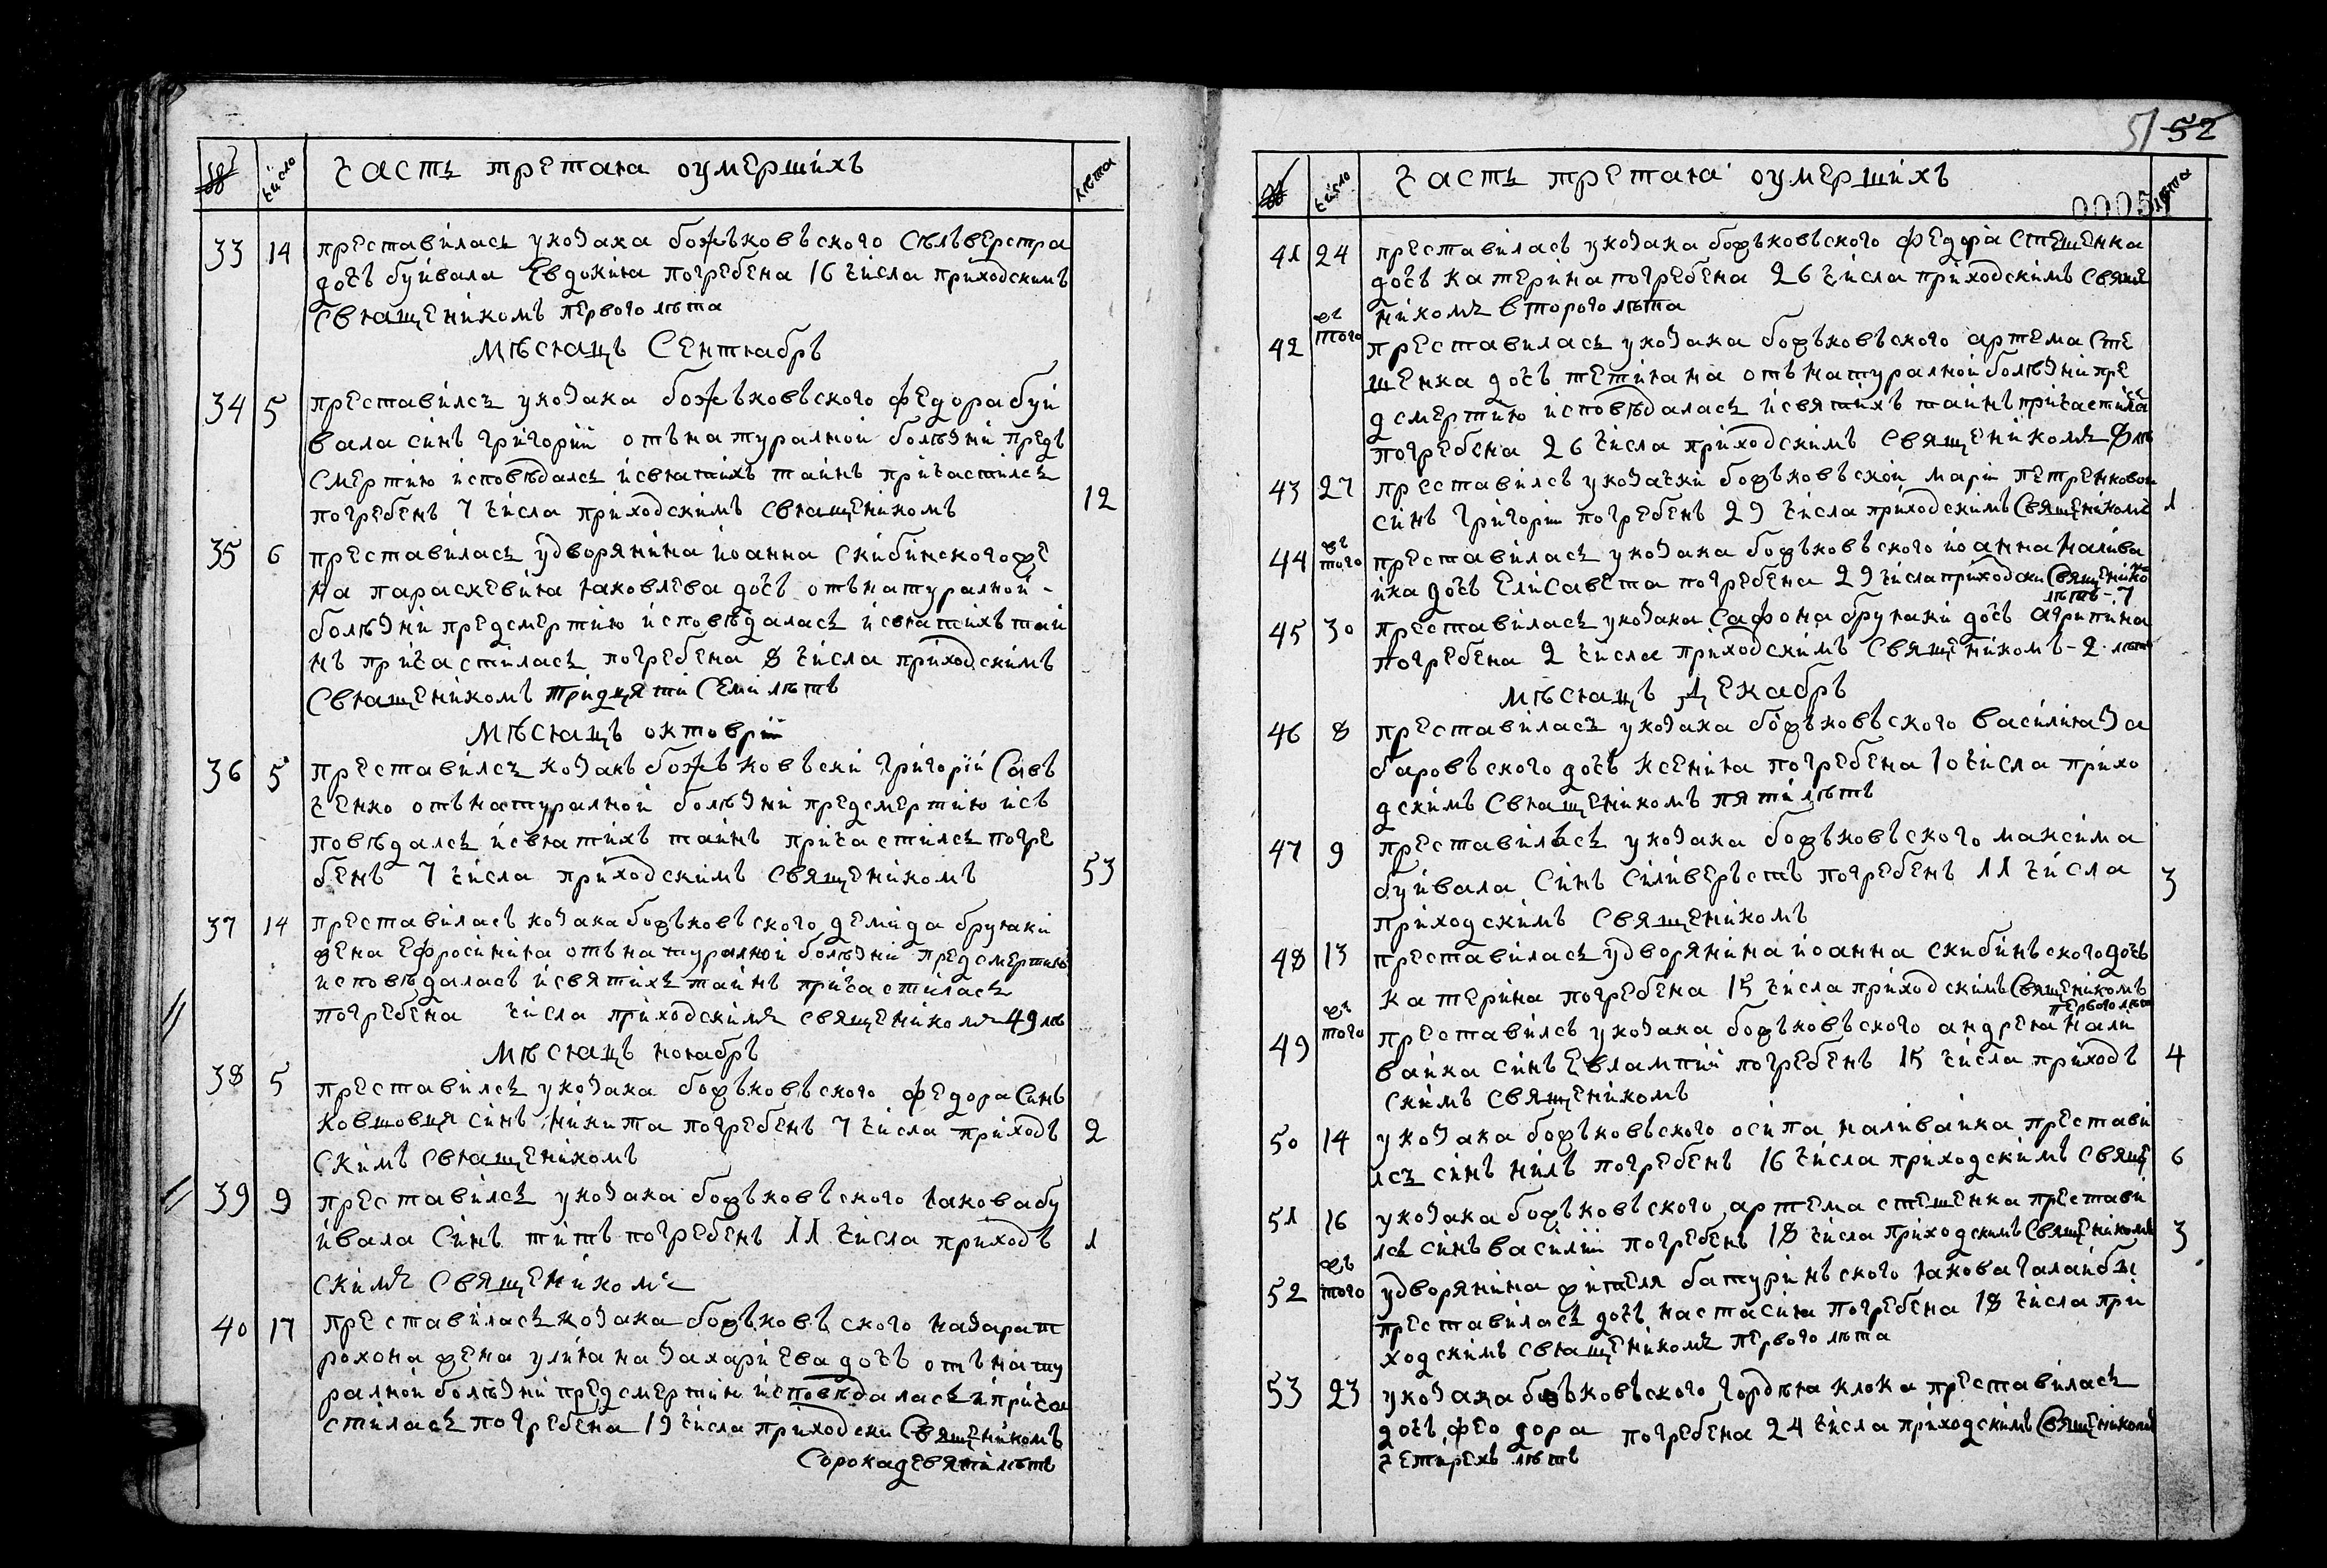 № число Часть третая оумершихъ лѣта
33 14 преставилась у козака божъковъского Сѣлъверстра
дочъ буйвала Евдокия погребена 16 числа приходскимъ
Священикомъ первого лѣта
Мѣсяцъ Сентябръ
34 5 преставилсь у козака божъковъского Федора буй
вала синъ григорий отъ натуралной болѣзни предъ
смертию исповѣдалсь и святихъ таинъ причастилсь
погребенъ 7 числа приходскимъ священикомъ 12
35 6 преставилась у дворянина иоанна Скибинского же
на параскевия яковлева дочъ отъ натуралной -
болѣзни пред смертию исповѣдалась и святихъ таи
нъ причастилась погребена 8 числа приходскимъ
Священикомъ тридцяти Семи лѣтъ
Мѣсяцъ октоврий
36 5 преставилсь козакъ божъковъски григорий Савъ
ченко отъ натуралной болѣзни пред смертию исъ
повѣдалсь и святихъ таинъ причастилсь погре
бенъ 7 числа приходскимъ священикомъ 53
37 14 преставиласъ козака божъковъского демида брупаки
жена Ефросиния отъ натуралной болѣзни пред смертию
исповѣдаласъ и святихъ таинъ причастилась
погребена числа приходскимъ священикомъ 49 лѣ
Мѣсяцъ ноябръ
38 5 преставилсь у козака божъковъского федора Синь
ковшовця синъ никита погребенъ 7 числа приходъ 2
Скимъ священикомъ
39 9 преставилсь у козака божъковъского якова бу
йвала Синъ титъ погребенъ 11 числа приходъ 1
скимъ священикомъ
40 17 преставилась козака божъковъского назара т
рохона жена улияна захариева дочъ отъ нату
ралной болѣзни пред смертию исповѣдалась и прича
стилась погребена 19 числа приходски Священикомъ
Сорока девяти лѣтъ
51 52
№ число Часть третая оумершихъ лѣта
00051
41 24 преставиласъ у козака божъковъского федора Стешенка
дочъ катерина погребена 26 числа приходскимъ свяще
никомъ второго лѣта
42 жъ того преставилась у козака божъковъского артема Сте
шенка дочъ тетияна отъ натуралной болѣзни пре
д смертию исповѣдалась и святихъ таинъ причастила сь
погребена 26 числа приходскимъ священикомъ 8 лѣ
43 27 преставилсъ у козачки божъковъской марии петренковой
синъ григорий погребенъ 29 числа приходскимъ Священикомъ 1
44 жъ того преставилась у козака божъковъского иоанна налива
йка дочъ Елисавета погребена 29 числа приходски Священико мъ
лѣтъ - 7
45 30 преставилась у козака Сафона брупаки дочъ агрипина
погребена 2 числа приходскимъ Священикомъ - 2 лѣт
Мѣсяцъ Декабръ
46 8 преставилась у козака божъковъского василия За
баровъского дочъ ксения погребена 10 числа прихо
дскимъ Священикомъ пяти лѣтъ
47 9 преставилсь у козака божъковъского максима
буйвала Синъ Силиверъстъ погребенъ 11 числа 3
приходскимъ священикомъ
48 13 преставилась у дворянина иоанна скибинъского дочъ
катерина погребена 15 числа приходскимъ Священикомъ
первого лѣта
49 жъ того преставилсь у козака божъковъского андрея Нали
вайка синъ Евлампий погребенъ 15 числа приходъ 4
скимъ священикомъ
50 14 у козака божъковъского осипа наливайка престави
лсь синъ нилъ погребенъ 16 числа приходскимъ священ 6
51 16 у козака божъковъского артема стешенка престави
лсъ синъ василий погребенъ 18 числа приходскимъ Священикомъ 3
52 жъ того у дворянина жителя батуринъского якова Галайби
преставилась дочъ настасия погребена 18 числа при
ходскимъ священикомъ первого лѣта
53 23 у козака божъковъского гордѣя клока преставилась
дочъ феодора погребена 24 числа приходскимъ Священикомъ
четирехъ лѣтъ